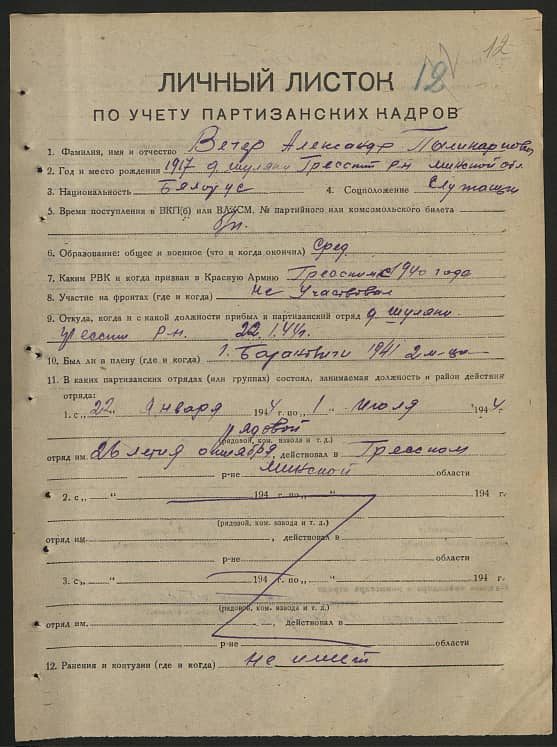 12
12
ЛИЧНЫЙ ЛИСТОК
ПО УЧЕТУ ПАРТИЗАНСКИХ КАДРОВ
1. Фамилия, имя и отчество Вечер Александр
2. Год и место рождения 1917 д Шуляки р-н Минской обл
3. Национальность Белорус 4. Соцположение Служащи
5. Время поступления в ВКП(б) или ВЛКСМ, № партийного или комсомольского билета
б/п.
6. Образование: общее и военное (что и когда окончил) Сред
7. Каким РВК и когда призван в Красную Армию 1940 года
8. Участие на фронтах (где и когда) не участвовал
9. Откуда, когда и с какой должности прибыл в партизанский отряд д Шуляки
р-н. 22.1.44г.
10. Был ли в плену (где и когда) г. 1941 2 м-ца
11. В каких партизанских отрядах (или группах) состоял, занимаемая должность и район действия
отряда:
1. с „22“ Января 1944 г. по „1“ Июля 1944 г.
рядовой
(рядовой, ком. взвода и т. д.)
отряд им. 26 летия октября, действовал в
р-не Минской области
2. с „ “ 194 г. по „ “ 194 г.
(рядовой, ком. взвода и т. д.)
отряд им. , действовал в
р-не области
3. с „ “ 194 г. по „ “ 194 г.
(рядовой, ком. взвода и т. д.)
отряд им. , действовал в
р-не области
12. Ранения и контузии (где и когда) не имеет